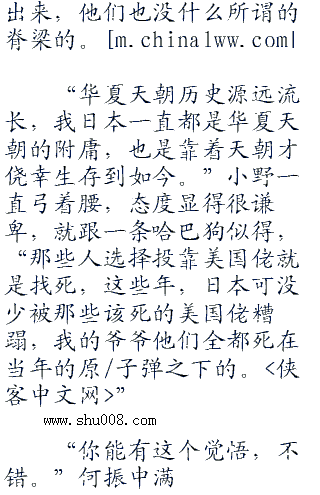 出来，他们也没什么所谓的
脊梁的。[m.chinalww.com|
“华夏天朝历史源远流
长，我日本一直都是华夏天
朝的附庸，也是靠着天朝才
侥幸生存到如今。”小野一
直弓着腰，态度显得很谦
卑，就跟一条哈巴狗似得，
“那些人选择投靠美国佬就
是找死，这些年，日本可没
少被那些该死的美国佬糟
蹋，我的爷爷他们全都死在
当年的原/子弹之下的。<侠
客中文网>”
www.shu008.com
“你能有这个觉悟，不
错。”何振中满